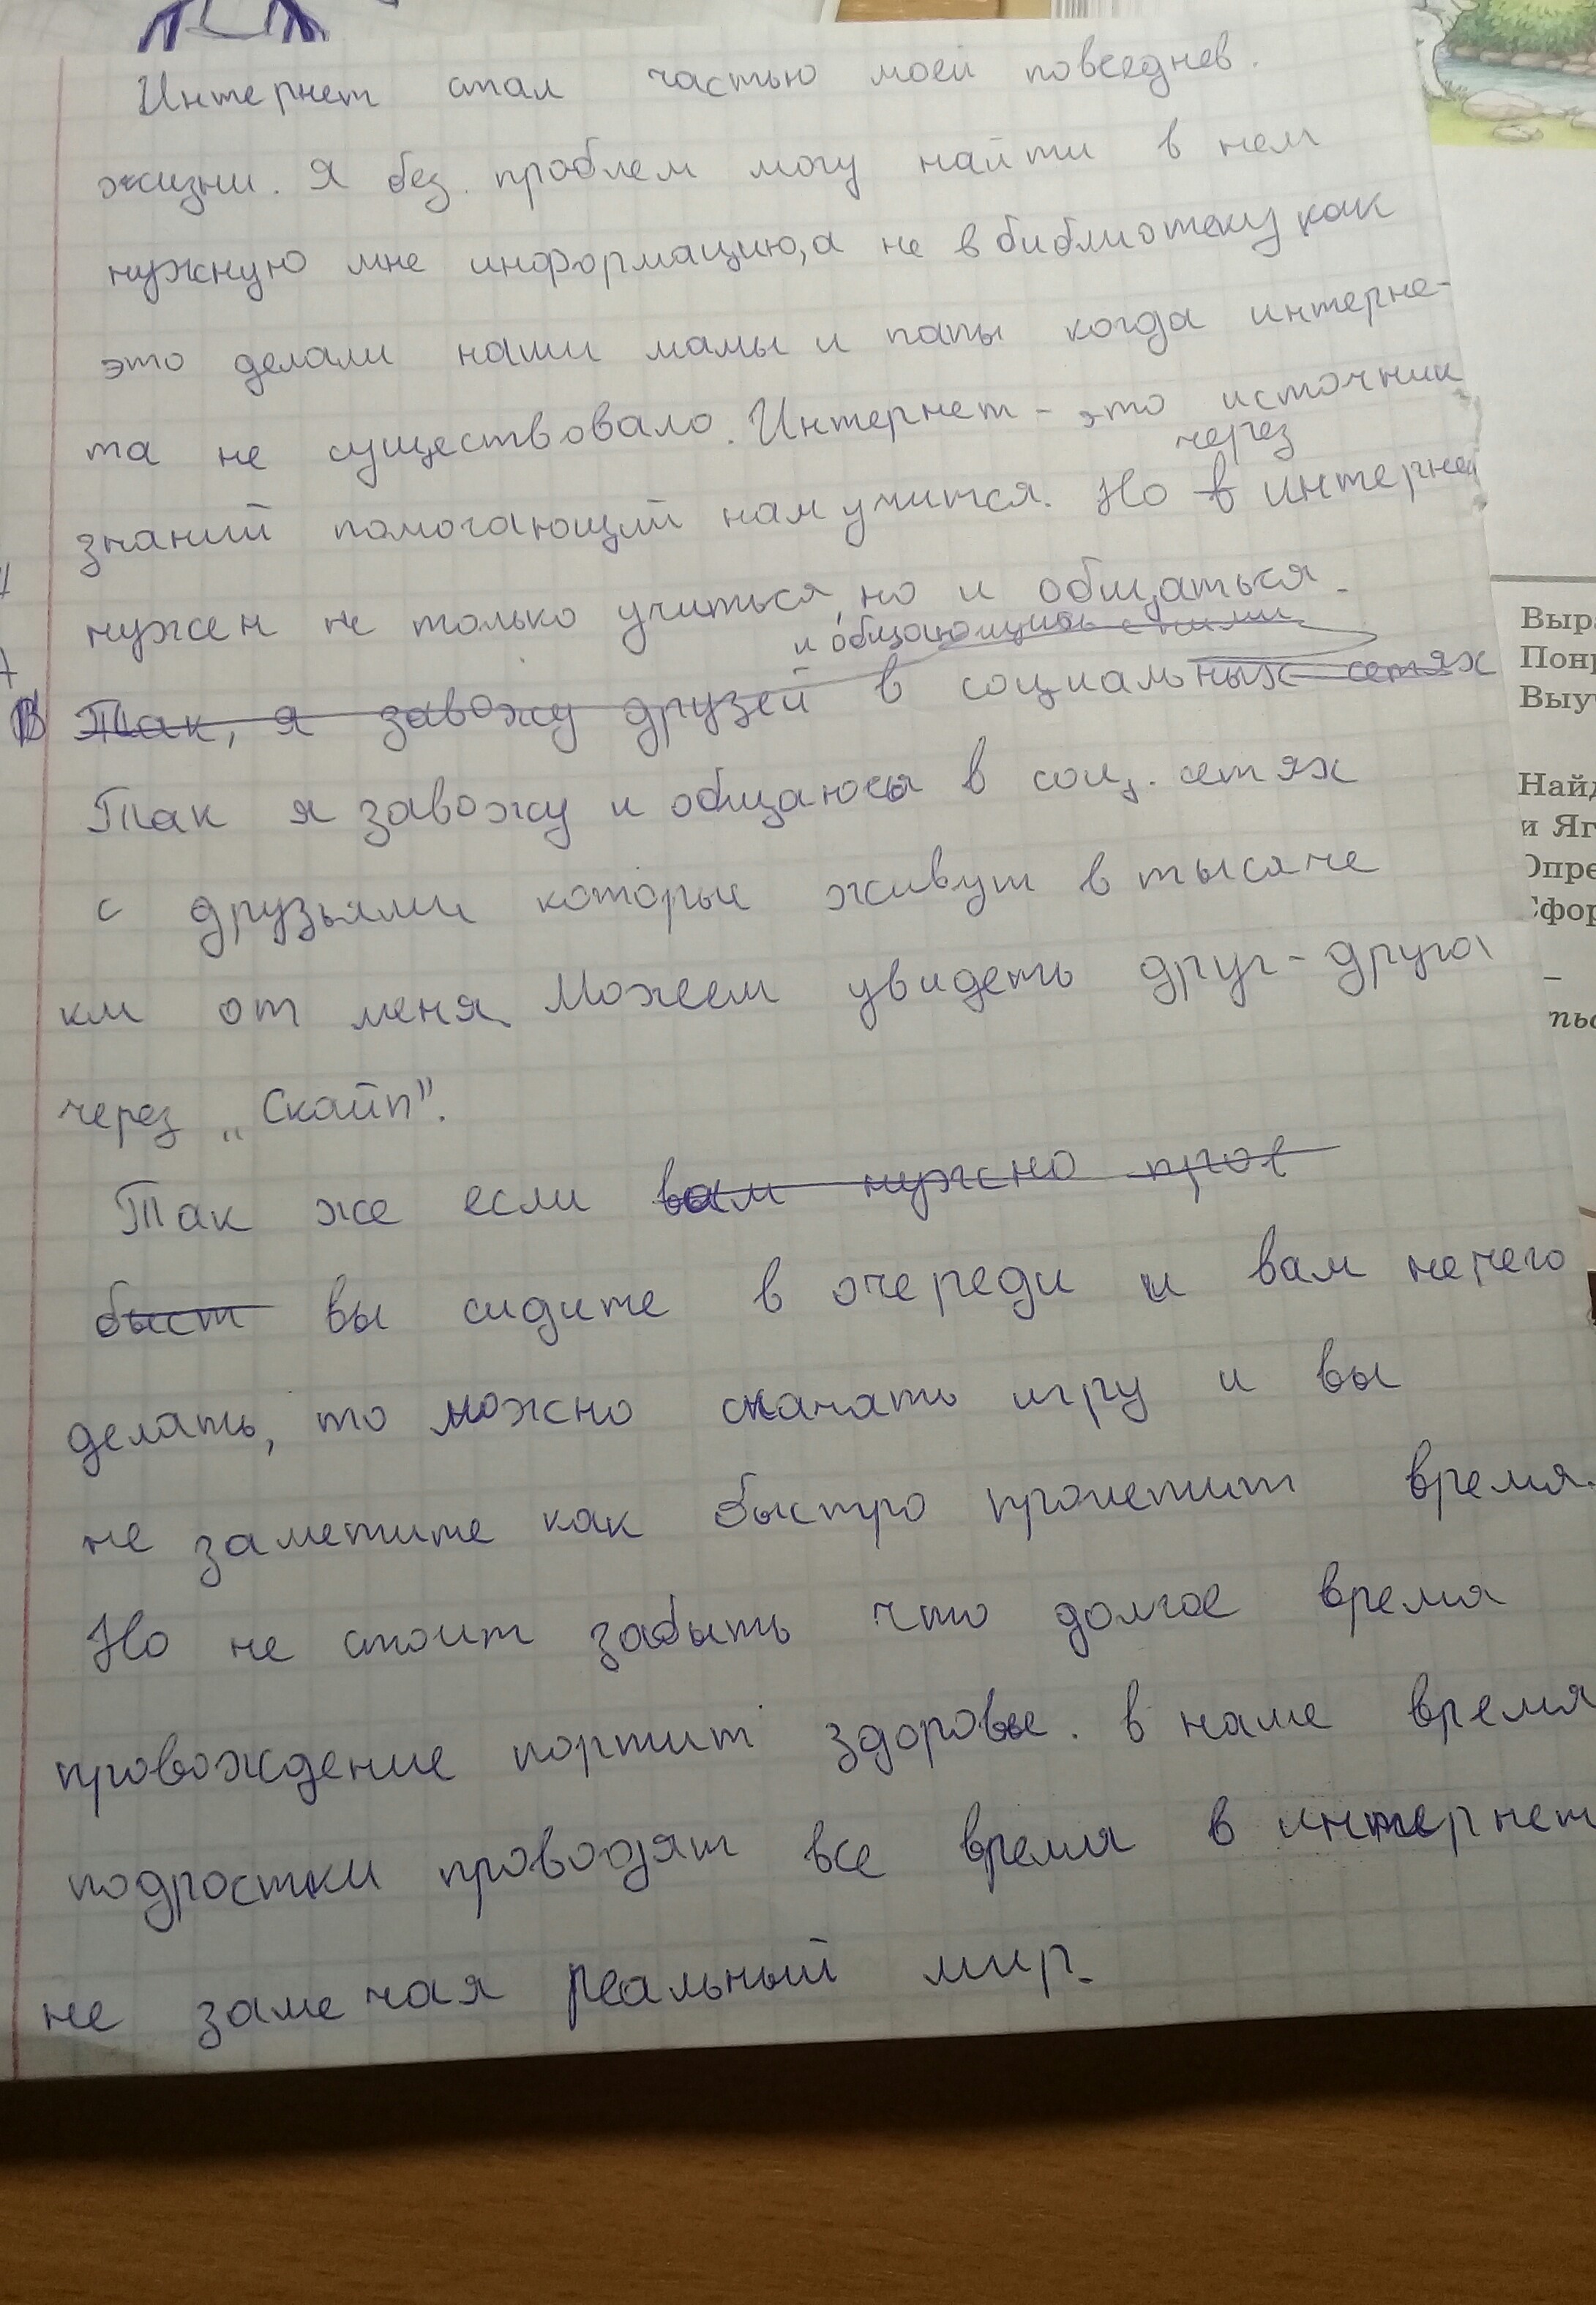 Интернет стал частью моей повседнев.
жизни. Я без проблем могу найти в нем
нужную мне информацию, а не в библиотеку как
это делали наши мамы и папы когда интерне-
та не существовало. Интернет - это источник
через
знаний помогающий нам учится. Но в интерне
нужен не только учиться, но и общаться.
и общающиись с ними
В Так, я завожу друзей в социальных сетях
Так я завожу и общаюсь в соц. сетях
с друзьями которые живут в тысяче
км от меня. Можеем увидеть друг-друга
через „Скайп".
Так же если вам нужно прос
быст вы сидите в очереди и вам нечего
делать, то можно скачать игру и вы
не заметите как быстро пролетит время.
Но не стоит забыть что долгое время
провождение портит здоровье. в наше время
подростки проводят все время в интернет
не замечая реальный мир.
Выр
Пон
Выу
Найд
и Яг
Опре
Сфор